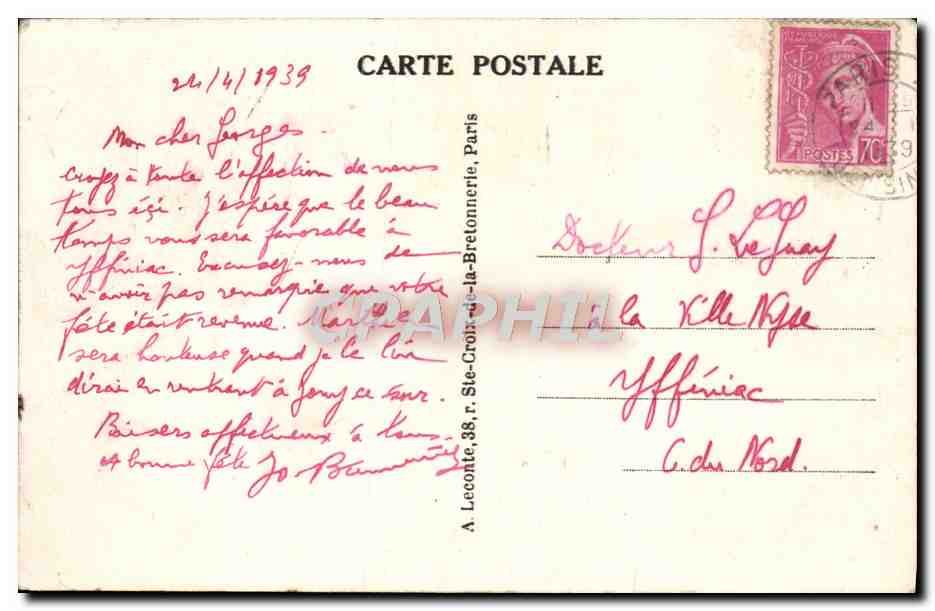 CARTE POSTALE
24/4/1939
Mon cher Georges
croyez à toute l'affection de nous
tous içi. J'espère que le beau
temps vous sera favorable à
Yffiniac. Excusez-nous de
n'avoir pas remarqué que votre
fête était revenue.
sera honteuse quand je le lui
dirai en rentrant à Jouy ce soir.
Baisers affectueux à tous
et bonne fête Jo
A. Leconte, 38, r. Ste-Croix-de-la-Bretonnerie, Paris
POSTES 70c
Docteur G. Le Guay
à la Ville
Yffiniac
C. du Nord.
CPARHIL